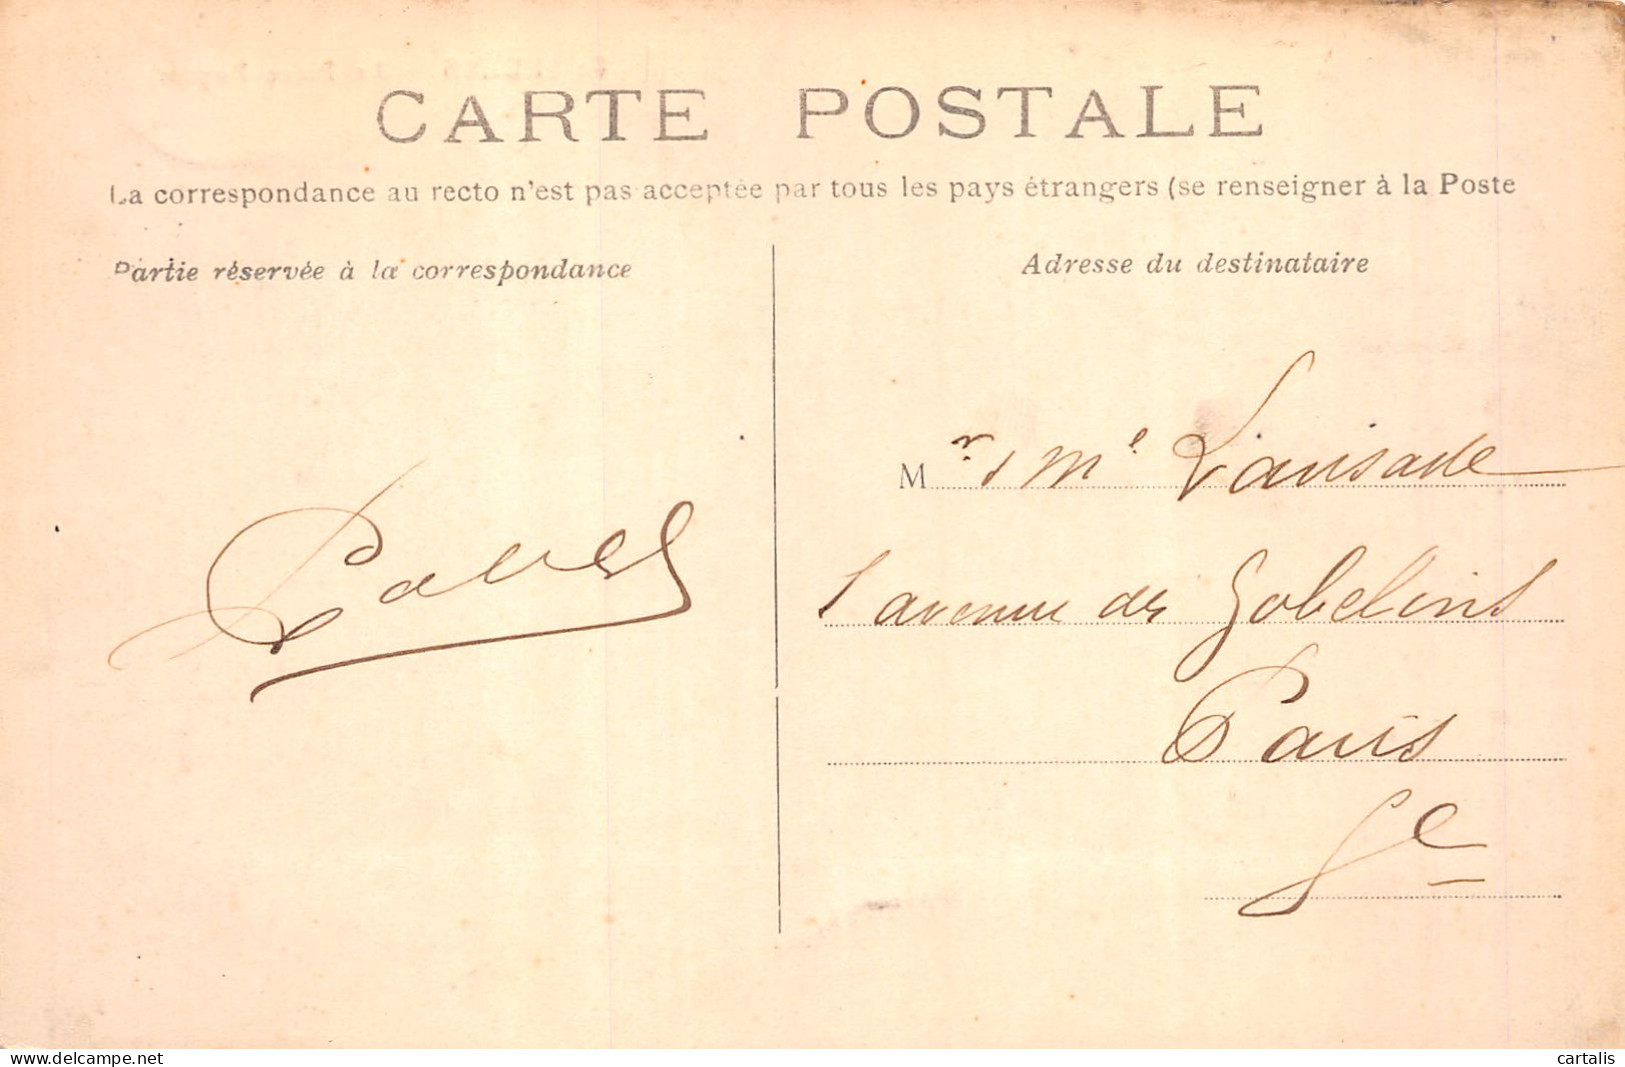 CARTE POSTALE
La correspondance au recto n'est pas acceptée par tous les pays étrangers (se renseigner à la Poste
Partie réservée à la correspondance
Adresse du destinataire
Mr & Me Lansade
1 avenue des Gobelins
Paris
5e
www.delcampe.net
cartalis